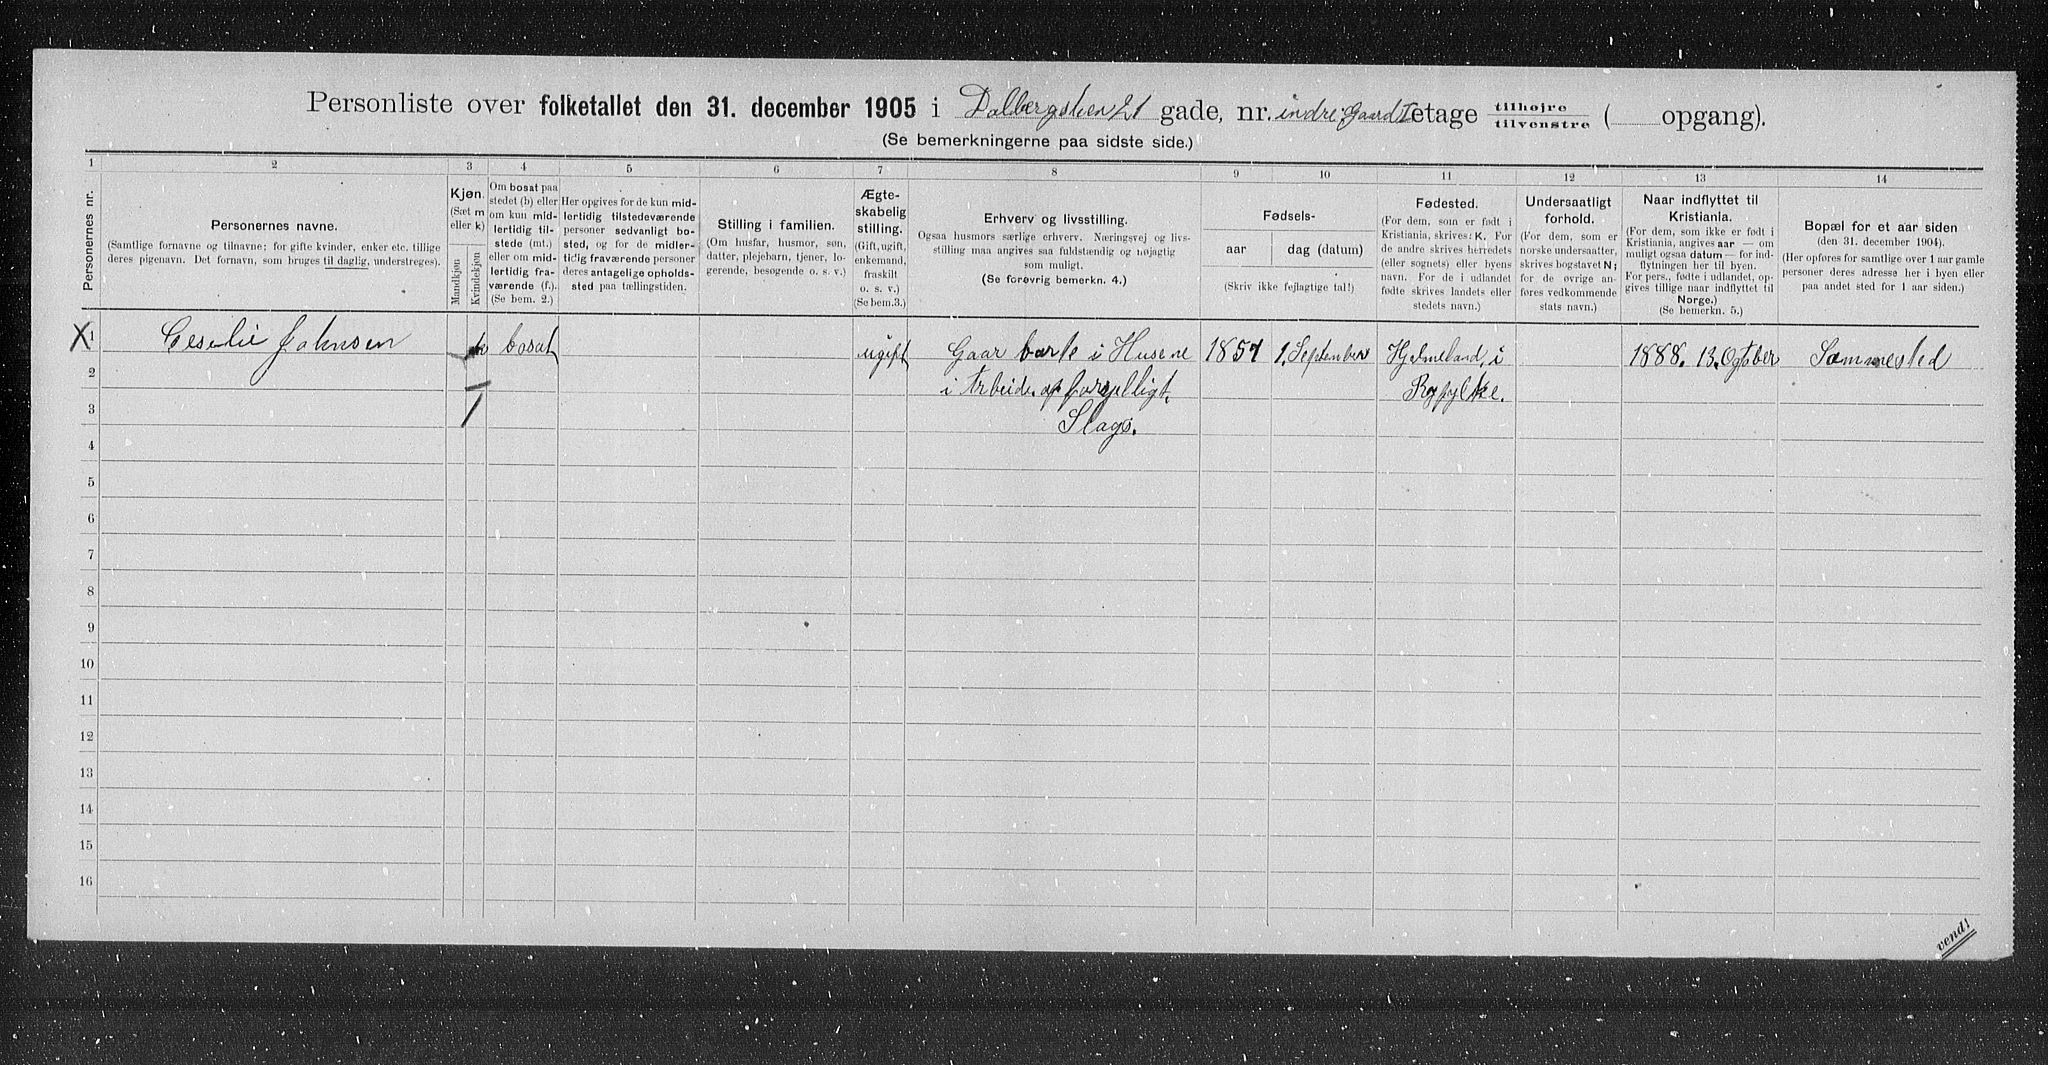 Personliste over folketallet den 31. december 1905 i Dalbergstien 21 gade, nr. indre Gaard I etage tilhøjre tilvenstre ( opgang).
(Se bemerkningerne paa sidste side.)
1 2 3 4 5 6 7 8 9 10 11 12 13 14
Personernes nr.
Personernes navne.
(Samtlige fornavne og tilnavne; for gifte kvinder, enker etc. tillige
deres pigenavn. Det fornavn, som bruges til daglig, understreges).
Kjøn.
(Sæt m
eller k)
Mandkjøn
Kvindekjøn
Om bosat paa
stedet (b) eller
om kun mid-
lertidig til-
stede (mt.)
eller om mid-
lertidig fra-
værende (f.).
(Se bem. 2.)
Her opgives for de kun mid-
lertidig tilstedeværende
personer sedvanlig bo-
sted, og for de midler-
tidig fraværende personer
deres antagelige opholds-
sted paa tællingstiden.
Stilling i familien.
(Om husfar, husmor, søn,
datter, plejebarn, tjener, lo-
gerende, besøgende o. s. v.)
Ægte-
skabelig
stilling.
(Gift, ugift,
enkemand,
fraskilt
o. s. v.)
(Se bem.3.)
Erhverv og livsstilling.
Ogsaa husmors særlige erhverv. Næringsvej og livs-
stilling maa angives saa fuldstændig og nøjagtig
som muligt.
(Se forøvrig bemerkn. 4.)
Fødsels-
aar dag (datum)
(Skriv ikke fejlagtige tal!)
Fødested.
(For dem, som er født i
Kristiania, skrives: K. For
de andre skrives herredets
(eller sognets) eller byens
navn. For de i udlandet
fødte skrives landets eller
stedets navn.)
Undersaatligt
forhold.
(For dem, som er
norske undersaatter,
skrives bogstavet N;
for de øvrige an-
føres vedkommende
stats navn.)
Naar indflyttet til
Kristiania.
(For dem, som ikke er født i
Kristiania, angives aar — om
muligt ogsaa datum — for ind-
flytningen her til byen.
For pers., født i udlandet, op-
gives tillige naar indflyttet til
Norge.)
(Se bemerkn. 5.)
Bopæl for et aar siden
(den 31. december 1904).
(Her opføres for samtlige over 1 aar gamle
personer deres adresse her i byen eller
paa andet sted for 1 aar siden.)
X 1 Ceselie Johnsen k bosat ugift Gaar borte i Husene 1857 1. September Hjelmeland i 1888. 13. Ogtober Sammested
2 i Arbeide af forsjelligt Ryfylke.
3 Slags.
4
5
6
7
8
9
10
11
12
13
14
15
16
vend!